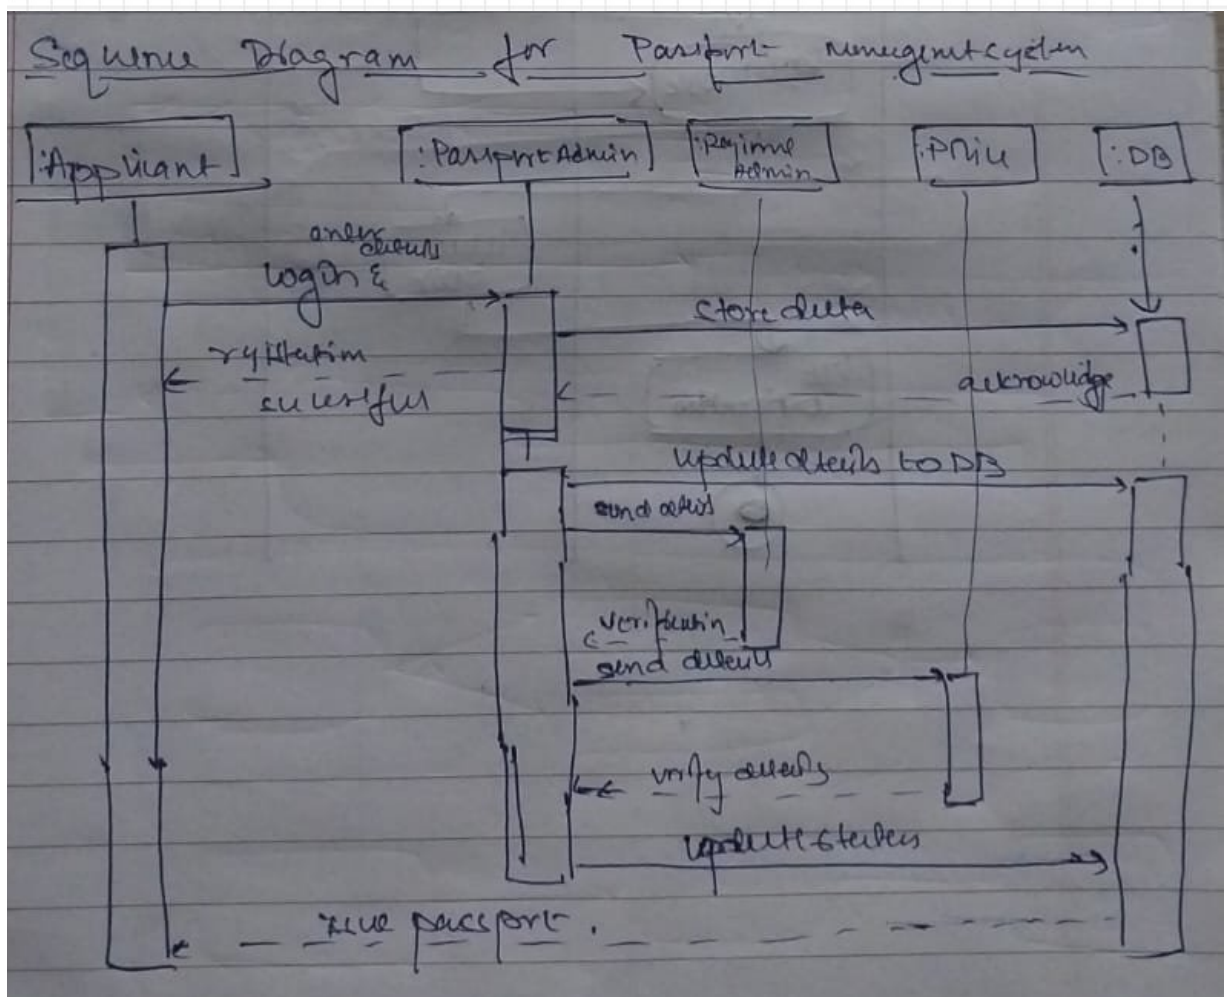 Sequence Diagram for Passport management system
:Applicant
:Passport Admin
:Regional
Admin
:Police
:DB
enter
details
login &
store data
registration
successful
acknowledge
update details to DB
send details
verification
send details
verify details
update status
issue passport.